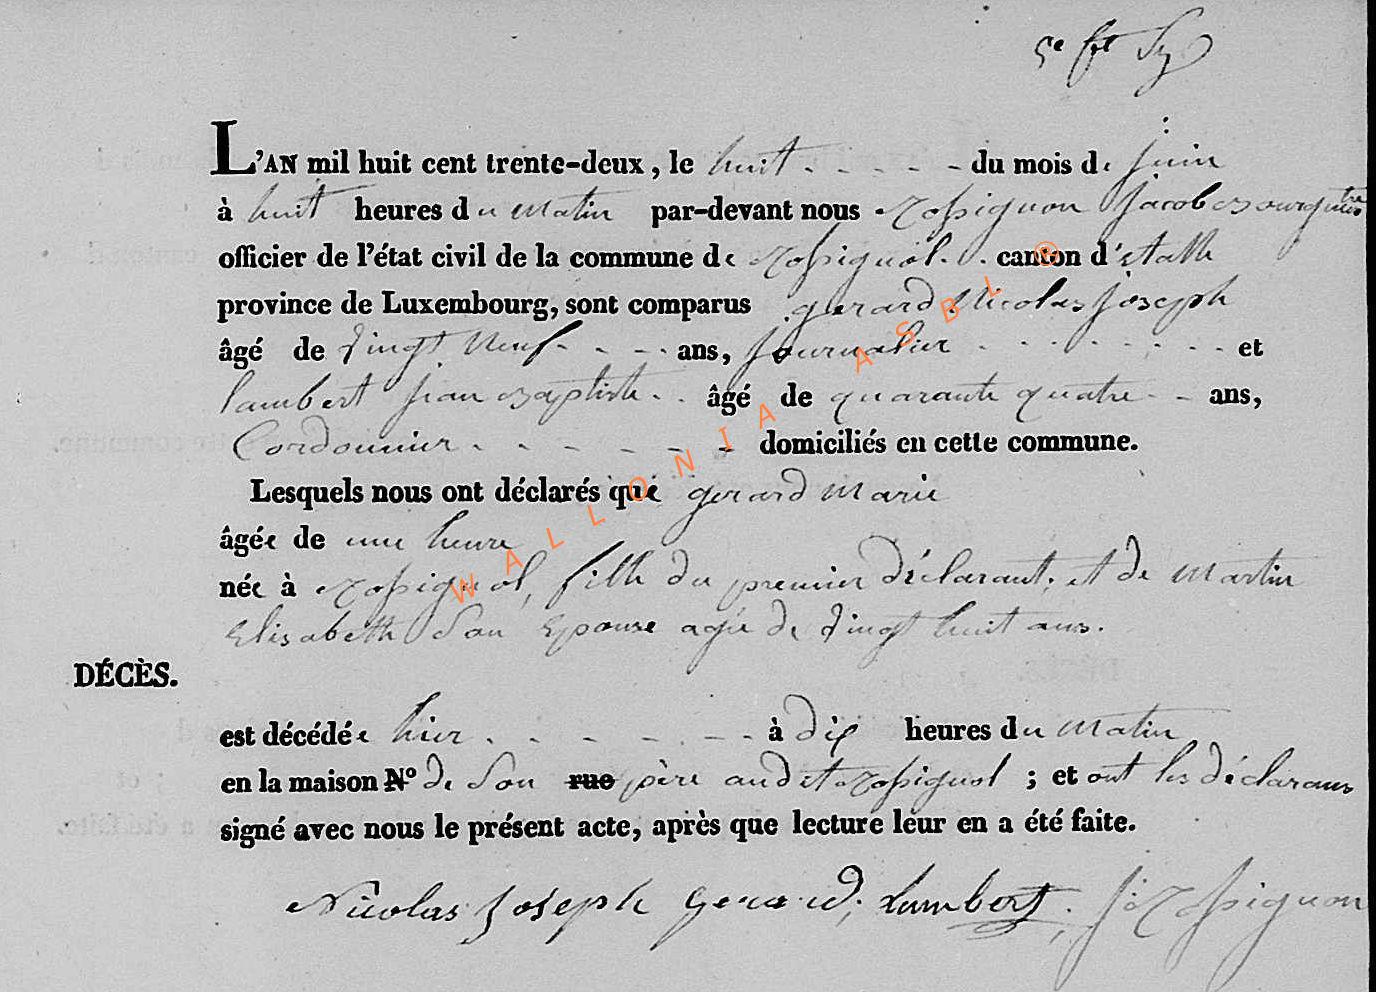 5e ft
L'AN mil huit cent trente-deux, le huit - - - - - du mois de juin
à huit heures du matin par-devant nous Rossignon Jacob Bourgmtre
officier de l'état civil de la commune de Rossignol. . canton d'étalle
province de Luxembourg, sont comparus gerard Nicolas Joseph
âgé de vingt neuf - - - - ans, journalier - - - - - - - - et
lambert jean Baptiste - - âgé de quarante quatre - - ans,
Cordonnier - - - - - - domiciliés en cette commune.
Lesquels nous ont déclarés que gerard marie
âgée de une heure
née à Rossignol, fille du premier déclarant, et de martin
Elisabeth son Epouse agée de vingt huit ans.
DÉCÈS.
est décédée hier - - - - - - - à dix heures du matin
en la maison N° de son rue père audit Rossignol ; et ont les déclarans
signé avec nous le présent acte, après que lecture leur en a été faite.
Nicolas Joseph Gerard, Lambert, J Rossignon
WALLONIA ASBL ®